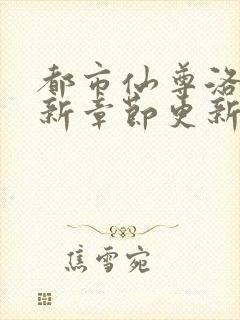 都市仙尊洛
新章节更新
焦雪宛